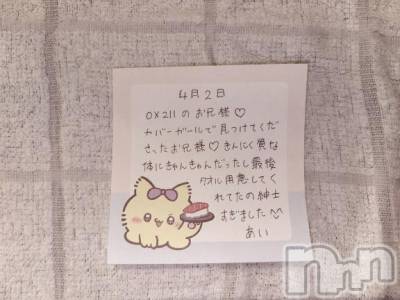 4月2日
OX211のお兄様♡
カバーガールで見つけてくだ
さったお兄様♡きんにく質な
体にきゅんきゅんだったし最後
タオル用意してく
れてたの紳士
すぎました♡
あい
nnn